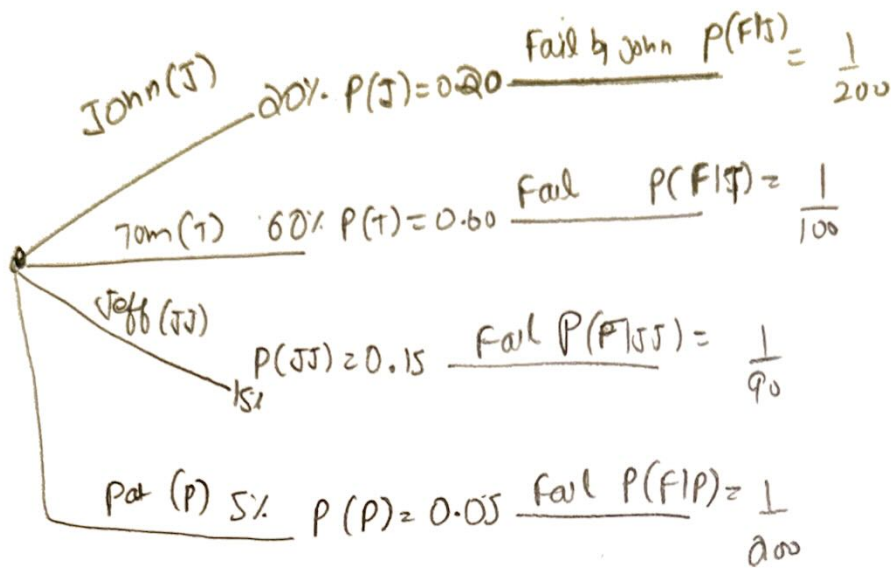 John(J) 20% P(J)=0.20 Fail by John P(F|J) = 1/200
Tom(T) 60% P(T)=0.60 Fail P(F|T)= 1/100
Jeff(JJ) 15% P(JJ)=0.15 Fail P(F|JJ)= 1/90
Pat (P) 5% P(P)=0.05 Fail P(F|P)= 1/200